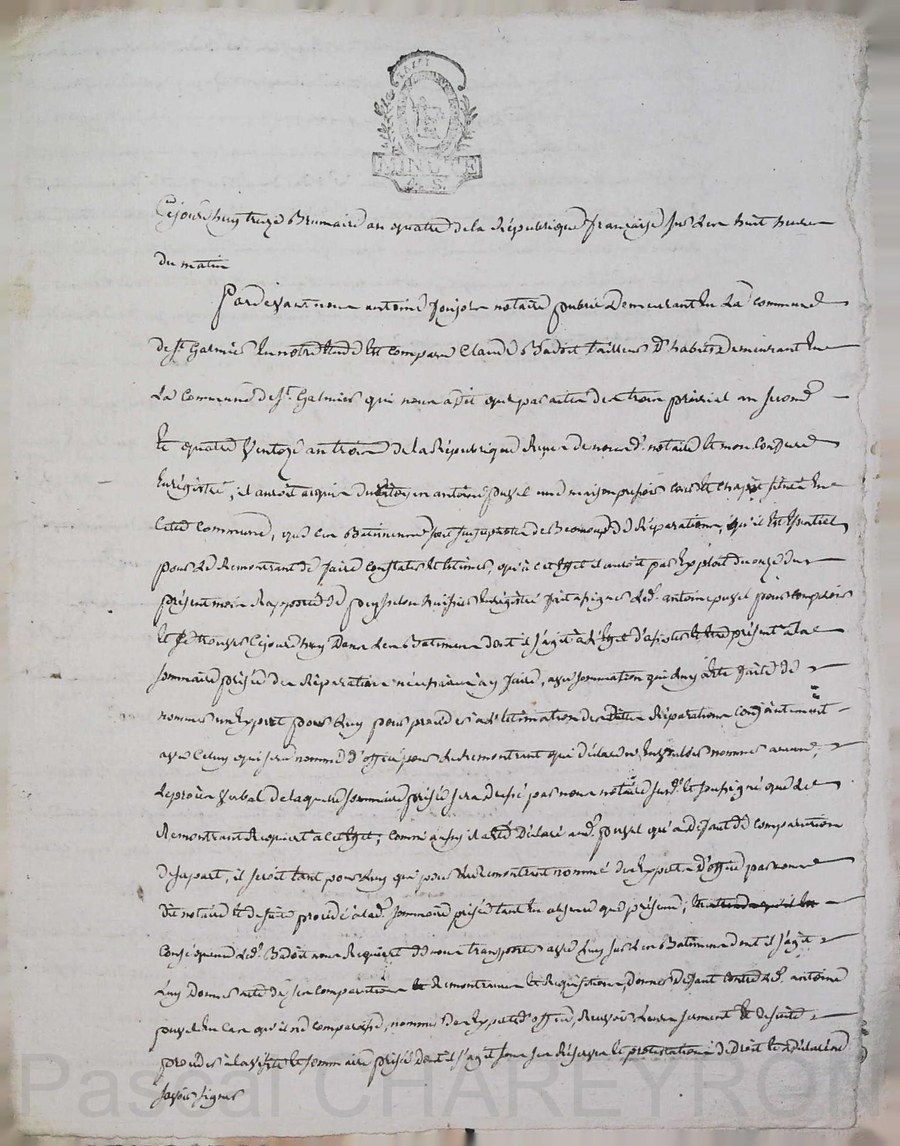 MINUTE
Cejourd'huy treize Brumaire an quatre de la République française sur les huit heures
du matin
Pardevant nous antoine notaire public demeurant en la commune
de St Galmier en notre étude est comparu Claude Badoit tailleur d'habits demeurant en
la Commune de St Galmier qui nous a dit que par actes des trois prérial an second
et quatre Ventoze an trois de la République Reçus de nous d. notaire et mon Confrere
Enrégistré, il auroit acquis du Citoyen antoine puyel une maison pressoir cour et chapit située en
Cette Commune, que ces Batiments sont susceptibles de Beaucoup de Réparations, qu'il est Essentiel
pour le Remontrant de faire constater et Estimer, qu'à cet effet il auroit par Exploit du onze du
présent mois Rapporté de huissier Enrégistré fait assigner led. antoine puyel pour comparoir
et se trouver Cejourd'huy dans les Batiments dont il s'agit à l'Effet d'assister et être présent à la
sommaire prisée des Réparations nécessaires à y faire, avec sommation qui luy a été faite de
nommer un Expert pour luy pour procéder à l'Estimation desdittes Réparations Conjointement
avec Celuy qui sera nommé d'office pour le Remontrant qui déclare n'en vouloir nommer aucun,
le procès Verbal de laquelle sommaire prisée sera dressé par nous notaire susd. et soussigné que le
Remontrant Requiert à cet Effet; comme aussy il a été Déclaré aud. puyel qu'à défaut de comparution
de sa part, il seroit tant pour luy que pour le Remontrant nommé des Experts d'office par nous
dit notaire et de suite procédé à lad. sommaire prisée tant en absence que présence,
Conséquence led. Badoit nous Requiert de nous transporter avec luy sur les Batiments dont il s'agit
luy donner acte de ses comparution Remontrance et Réquisitions, donner défaut contre led. antoine
puyel en Cas qu'il ne comparoisse, nommer des Experts d'office, Recevoir leurs serment et de suite
procéder à la visite et sommaire prisée dont il s'agit sous ses Réserves et protestations de Droit et a déclaré
savoir signer
Pascal CHAREYRON